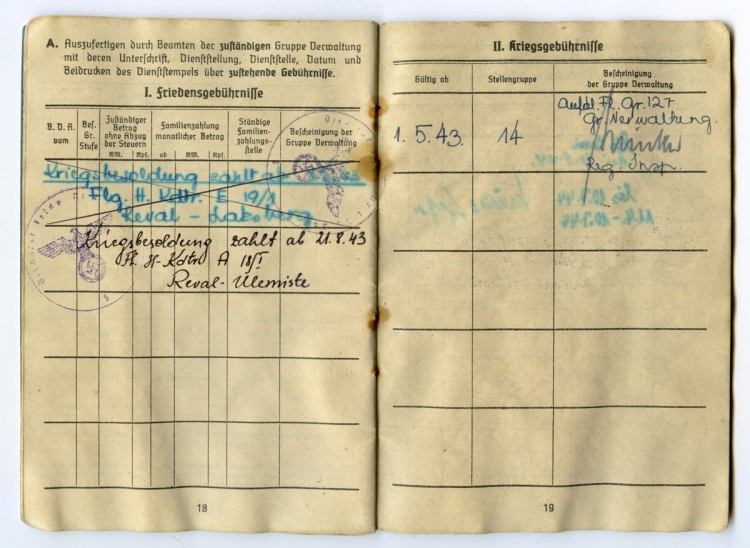 A. Auszufertigen durch Beamten der zuständigen Gruppe Verwaltung
mit deren Unterschrift, Dienststellung, Dienststelle, Datum und
Beidrucken des Dienststempels über zustehende Gebührnisse.
I. Friedensgebührnisse
B. D. A. vom
Bes. Gr. Stufe
Zuständiger Betrag ohne Abzug der Steuern
RM. Rpf.
Familienzahlung monatlicher Betrag
ab RM. Rpf.
Ständige Familien-zahlungs-stelle
Bescheinigung der Gruppe Verwaltung
Kriegsbesoldung zahlt ab
Flg. H. Kdtr. E 19/I
Reval - Laksberg
Kriegsbesoldung zahlt ab 21.8.43
Fl. H-Kdtr. A 18/I
Reval-Ülemiste
18
II. Kriegsgebührnisse
Gültig ab
Stellengruppe
Bescheinigung
der Gruppe Verwaltung
1.5.43.
14
Ausb. Fl. Gr. 127
Gr. Verwaltung.
Reg. Insp.
19